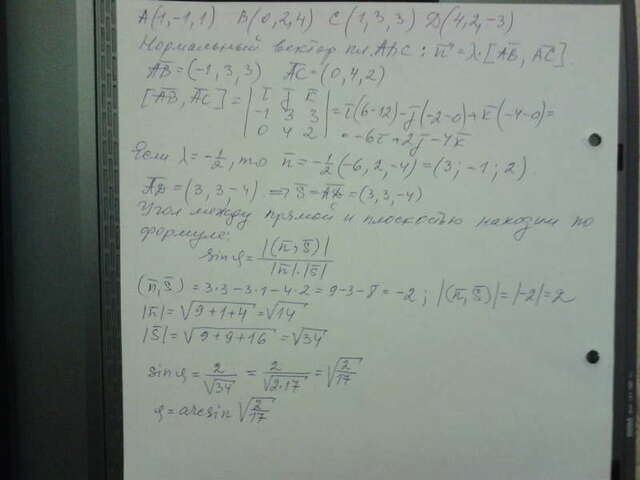 A(1,-1,1) B(0,2,4) C(1,3,3) D(4,2,-3)
Нормальный вектор пл. ABC: n = λ[AB, AC]
AB = (-1, 3, 3) AC = (0, 4, 2)
[AB, AC] = | i j k | = i(6-12) - j(-2-0) + k(-4-0) =
-1 3 3
0 4 2
= -6i + 2j - 4k
Если λ = -1/2, то n = -1/2 (-6, 2, -4) = (3; -1; 2)
AD = (3, 3, -4) ⇒ S = AD = (3, 3, -4)
Угол между прямой и плоскостью находим по
формуле:
sin φ = |(n, S)| / |n|·|S|
(n, S) = 3·3-3·1-4·2 = 9-3-8 = -2; |(n, S)| = |-2| = 2
|n| = √9+1+4 = √14
|S| = √9+9+16 = √34
sin φ = 2/√34 = 2/√2·17 = √2/17
φ = arcsin √2/17